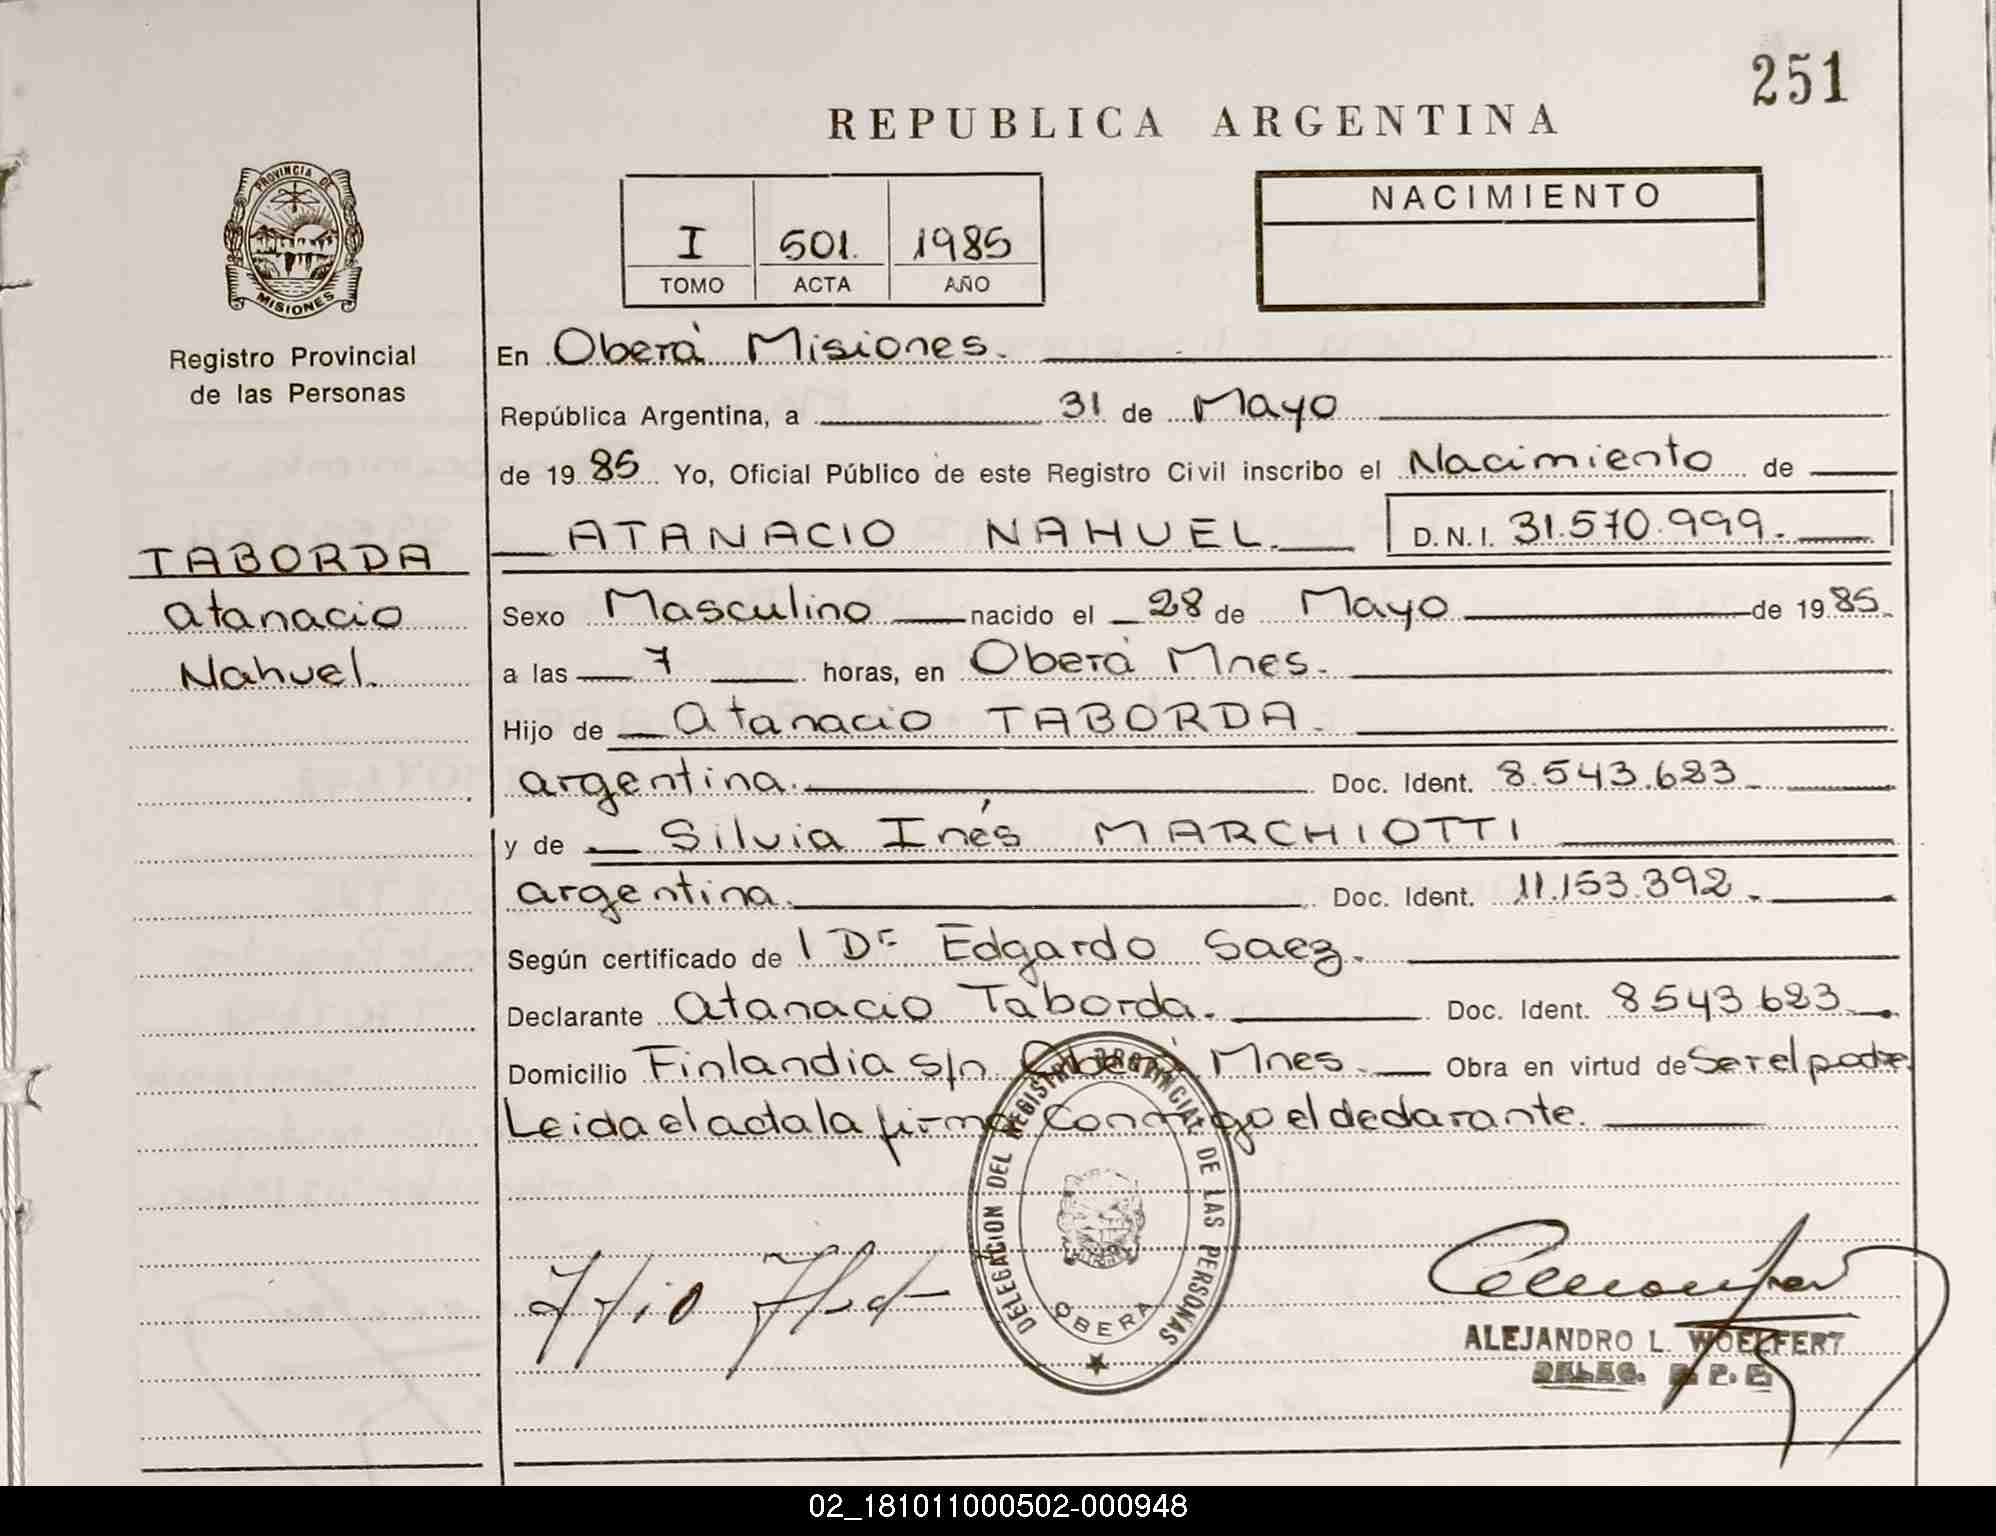 251
REPUBLICA ARGENTINA
PROVINCIA DE
MISIONES
Registro Provincial
de las Personas
I 501. 1985
TOMO ACTA AÑO
NACIMIENTO
En Oberá Misiones.
República Argentina, a 31 de Mayo
de 19 85 Yo, Oficial Público de este Registro Civil inscribo el Nacimiento de
ATANACIO NAHUEL. D.N.I. 31.570.999.
TABORDA
Atanacio
Nahuel.
Sexo Masculino nacido el 28 de Mayo de 19 85.
a las 7 horas, en Oberá Mnes.
Hijo de Atanacio TABORDA.
argentina. Doc. Ident. 8.543.623
y de Silvia Inés MARCHIOTTI
argentina. Doc. Ident. 11.153.392.
Según certificado de 1 Dr Edgardo Saez.
Declarante Atanacio Taborda. Doc. Ident. 8543.623
Domicilio Finlandia s/n Oberá Mnes. Obra en virtud de Ser el padre
Leida el acta la firma conmigo el declarante.
DELEGACION DEL REGISTRO PROVINCIAL DE LAS PERSONAS
OBERA
ALEJANDRO L. WOELFERT
DELEG. R. P. P.
02_181011000502-000948